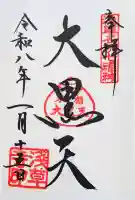 奉拝
大黒天
令和八年一月十五日
浅草